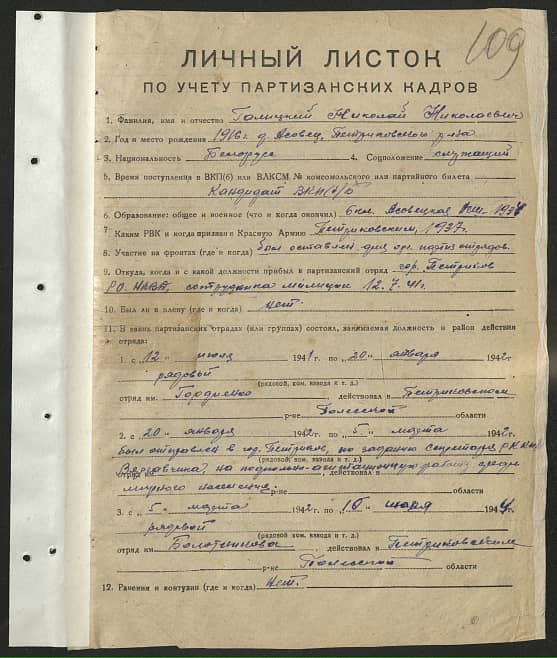 109
ЛИЧНЫЙ ЛИСТОК
ПО УЧЕТУ ПАРТИЗАНСКИХ КАДРОВ
1. Фамилия, имя и отчество Галицкий Николай Николаевич
2. Год и место рождения 1916 г. д. Асовец, Петриковского р-на
3. Национальность Белорус 4. Соцположение служащий
5. Время поступления в ВКП(б) или ВЛКСМ № комсомольского или партийного билета
Кандидат ВКП(б)
6. Образование: общее и военное (что и когда окончил) 6 кл. Асовецкая
7. Каким РВК и когда призван в Красную Армию Петриковским, 1937 г.
8. Участие на фронтах (где и когда) был оставлен для орг. партиз. отрядов.
9. Откуда, когда и с какой должности прибыл в партизанский отряд гор. Петриков
РО. НКВД, сотрудника милиции 12.7.41 г.
10. Был ли в плену (где и когда) нет.
11. В каких партизанских отрядах (или группах) состоял, занимаемая должность и район действия
отряда:
1. с „12" июля 1941 г. по „20" января 1942 г.
рядовый
(рядовой, ком. взвода и т. д.)
отряд им. Гордиенко действовал в Петриковском
р-не Полесской области
2. с „20" января 1942 г. по „5" марта 1942 г.
был отправлен в гор. Петриков, по заданию секретаря РК КП(б)Б
(рядовой, ком. взвода и т. д.)
отряд им. на подпольно-агитационную работу среди действовал в
мирного населения. р-не области
3. с „5" марта 1942 г. по „10" июня 1944 г.
рядовый
(рядовой, ком. взвода и т. д.)
отряд им. Болотникова действовал в Петриковским
р-не Полесской области
12. Ранения и контузии (где и когда) Нет.